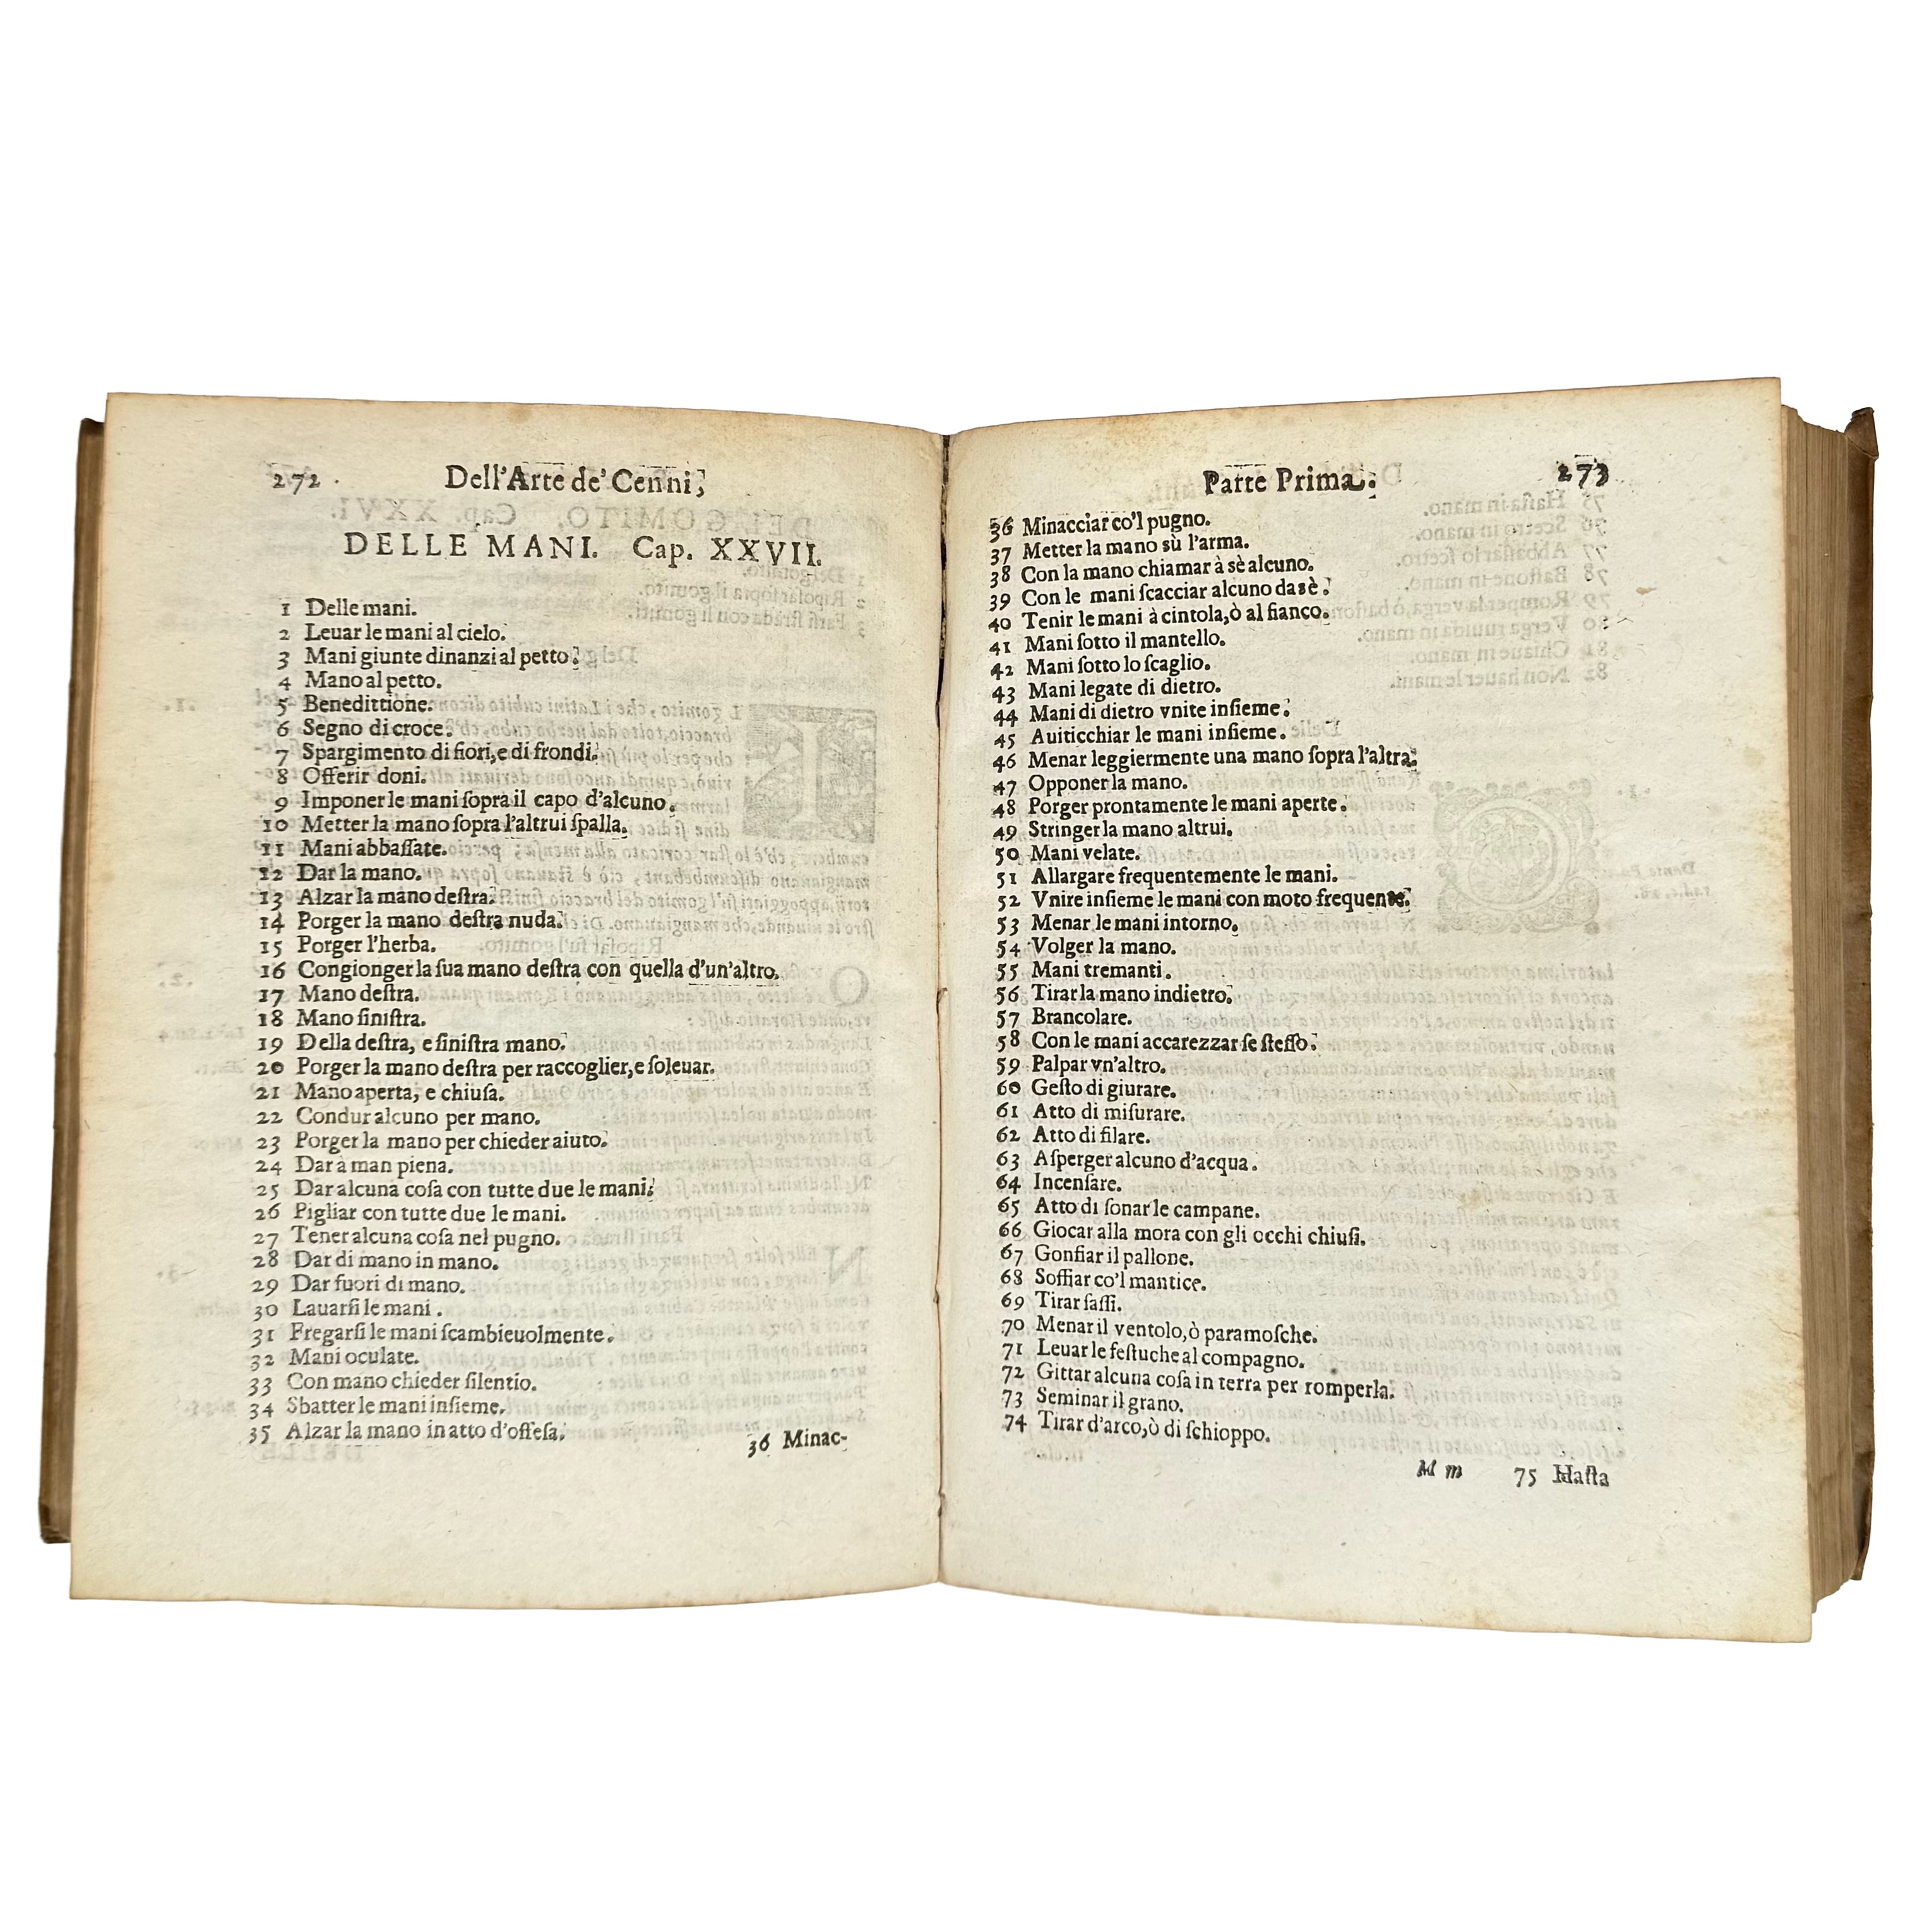 272
Dell'Arte de' Cenni,
DELLE MANI. Cap. XXVII.
1 Delle mani.
2 Leuar le mani al cielo.
3 Mani giunte dinanzi al petto.
4 Mano al petto.
5 Benedittione.
6 Segno di croce.
7 Spargimento di fiori, e di frondi.
8 Offerir doni.
9 Imponer le mani ſopra il capo d'alcuno.
10 Metter la mano ſopra l'altrui ſpalla.
11 Mani abbaſſate.
12 Dar la mano.
13 Alzar la mano deſtra.
14 Porger la mano deſtra nuda.
15 Porger l'herba.
16 Congionger la ſua mano deſtra con quella d'un'altro.
17 Mano deſtra.
18 Mano ſiniſtra.
19 Della deſtra, e ſiniſtra mano.
20 Porger la mano deſtra per raccoglier, e ſoleuar.
21 Mano aperta, e chiuſa.
22 Condur alcuno per mano.
23 Porger la mano per chieder aiuto.
24 Dar à man piena.
25 Dar alcuna coſa con tutte due le mani.
26 Pigliar con tutte due le mani.
27 Tener alcuna coſa nel pugno.
28 Dar di mano in mano.
29 Dar fuori di mano.
30 Lauarſi le mani.
31 Fregarſi le mani ſcambieuolmente.
32 Mani oculate.
33 Con mano chieder ſilentio.
34 Sbatter le mani inſieme.
35 Alzar la mano in atto d'offeſa.
36 Minac-
Parte Prima.
273
36 Minacciar co'l pugno.
37 Metter la mano sù l'arma.
38 Con la mano chiamar à sè alcuno.
39 Con le mani ſcacciar alcuno da sè.
40 Tenir le mani à cintola, ò al fianco.
41 Mani ſotto il mantello.
42 Mani ſotto lo ſcaglio.
43 Mani legate di dietro.
44 Mani di dietro vnite inſieme.
45 Auiticchiar le mani inſieme.
46 Menar leggiermente una mano ſopra l'altra.
47 Opponer la mano.
48 Porger prontamente le mani aperte.
49 Stringer la mano altrui.
50 Mani velate.
51 Allargare frequentemente le mani.
52 Vnire inſieme le mani con moto frequente.
53 Menar le mani intorno.
54 Volger la mano.
55 Mani tremanti.
56 Tirar la mano indietro.
57 Brancolare.
58 Con le mani accarezzar ſe ſteſſo.
59 Palpar vn'altro.
60 Geſto di giurare.
61 Atto di miſurare.
62 Atto di filare.
63 Aſperger alcuno d'acqua.
64 Incenſare.
65 Atto di ſonar le campane.
66 Giocar alla mora con gli occhi chiuſi.
67 Gonfiar il pallone.
68 Soffiar co'l mantice.
69 Tirar ſaſſi.
70 Menar il ventolo, ò paramoſche.
71 Leuar le feſtuche al compagno.
72 Gittar alcuna coſa in terra per romperla.
73 Seminar il grano.
74 Tirar d'arco, ò di ſchioppo.
M m 75 Haſta